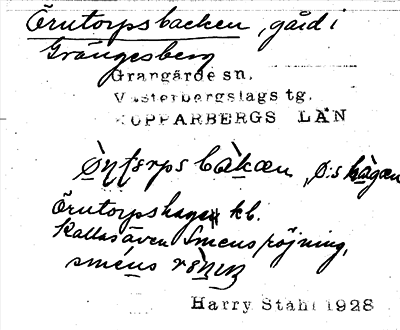 Örntorpsbacken, gård i
Grängesberg
Grangärde sn.
Västerbergslags tg.
KOPPARBERGS LÄN
bàkæn, Ø:s hàgæn
Örntorpshagen kb.
Kallas även Smens röjning,
Harry Ståhl 1928